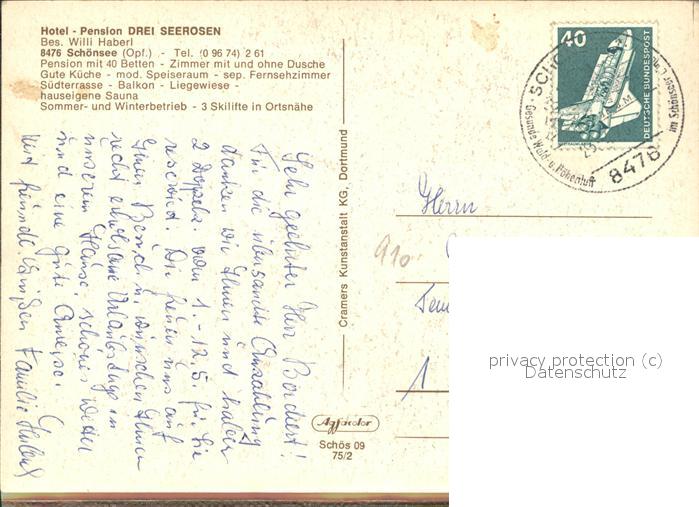 Hotel - Pension DREI SEEROSEN
Bes. Willi Haberl
8476 Schönsee (Opf.) - Tel. (0 96 74) 2 61
Pension mit 40 Betten - Zimmer mit und ohne Dusche
Gute Küche - mod. Speiseraum - sep. Fernsehzimmer
Südterrasse - Balkon - Liegewiese -
hauseigene Sauna
Sommer- und Winterbetrieb - 3 Skilifte in Ortsnähe
Sehr geehrter Herr
Für die übersandte Anzahlung
danken wir Ihnen und haben
2 Doppelz. vom 1. - 12.5. für Sie
reserviert. Wir freuen uns auf
Ihren Besuch u. wünschen Ihnen
recht erholsame Urlaubstage in
unserem Hause, schönes Wetter
und eine gute Anreise.
Mit freundl. Grüßen Familie Haberl
Cramers Kunstanstalt KG, Dortmund
Agfacolor
Schös 09
75/2
40
DEUTSCHE BUNDESPOST
Gesunde Wald- u. Höhenluft
im Schönseer
8476
Herrn
910
1
privacy protection (c)
Datenschutz